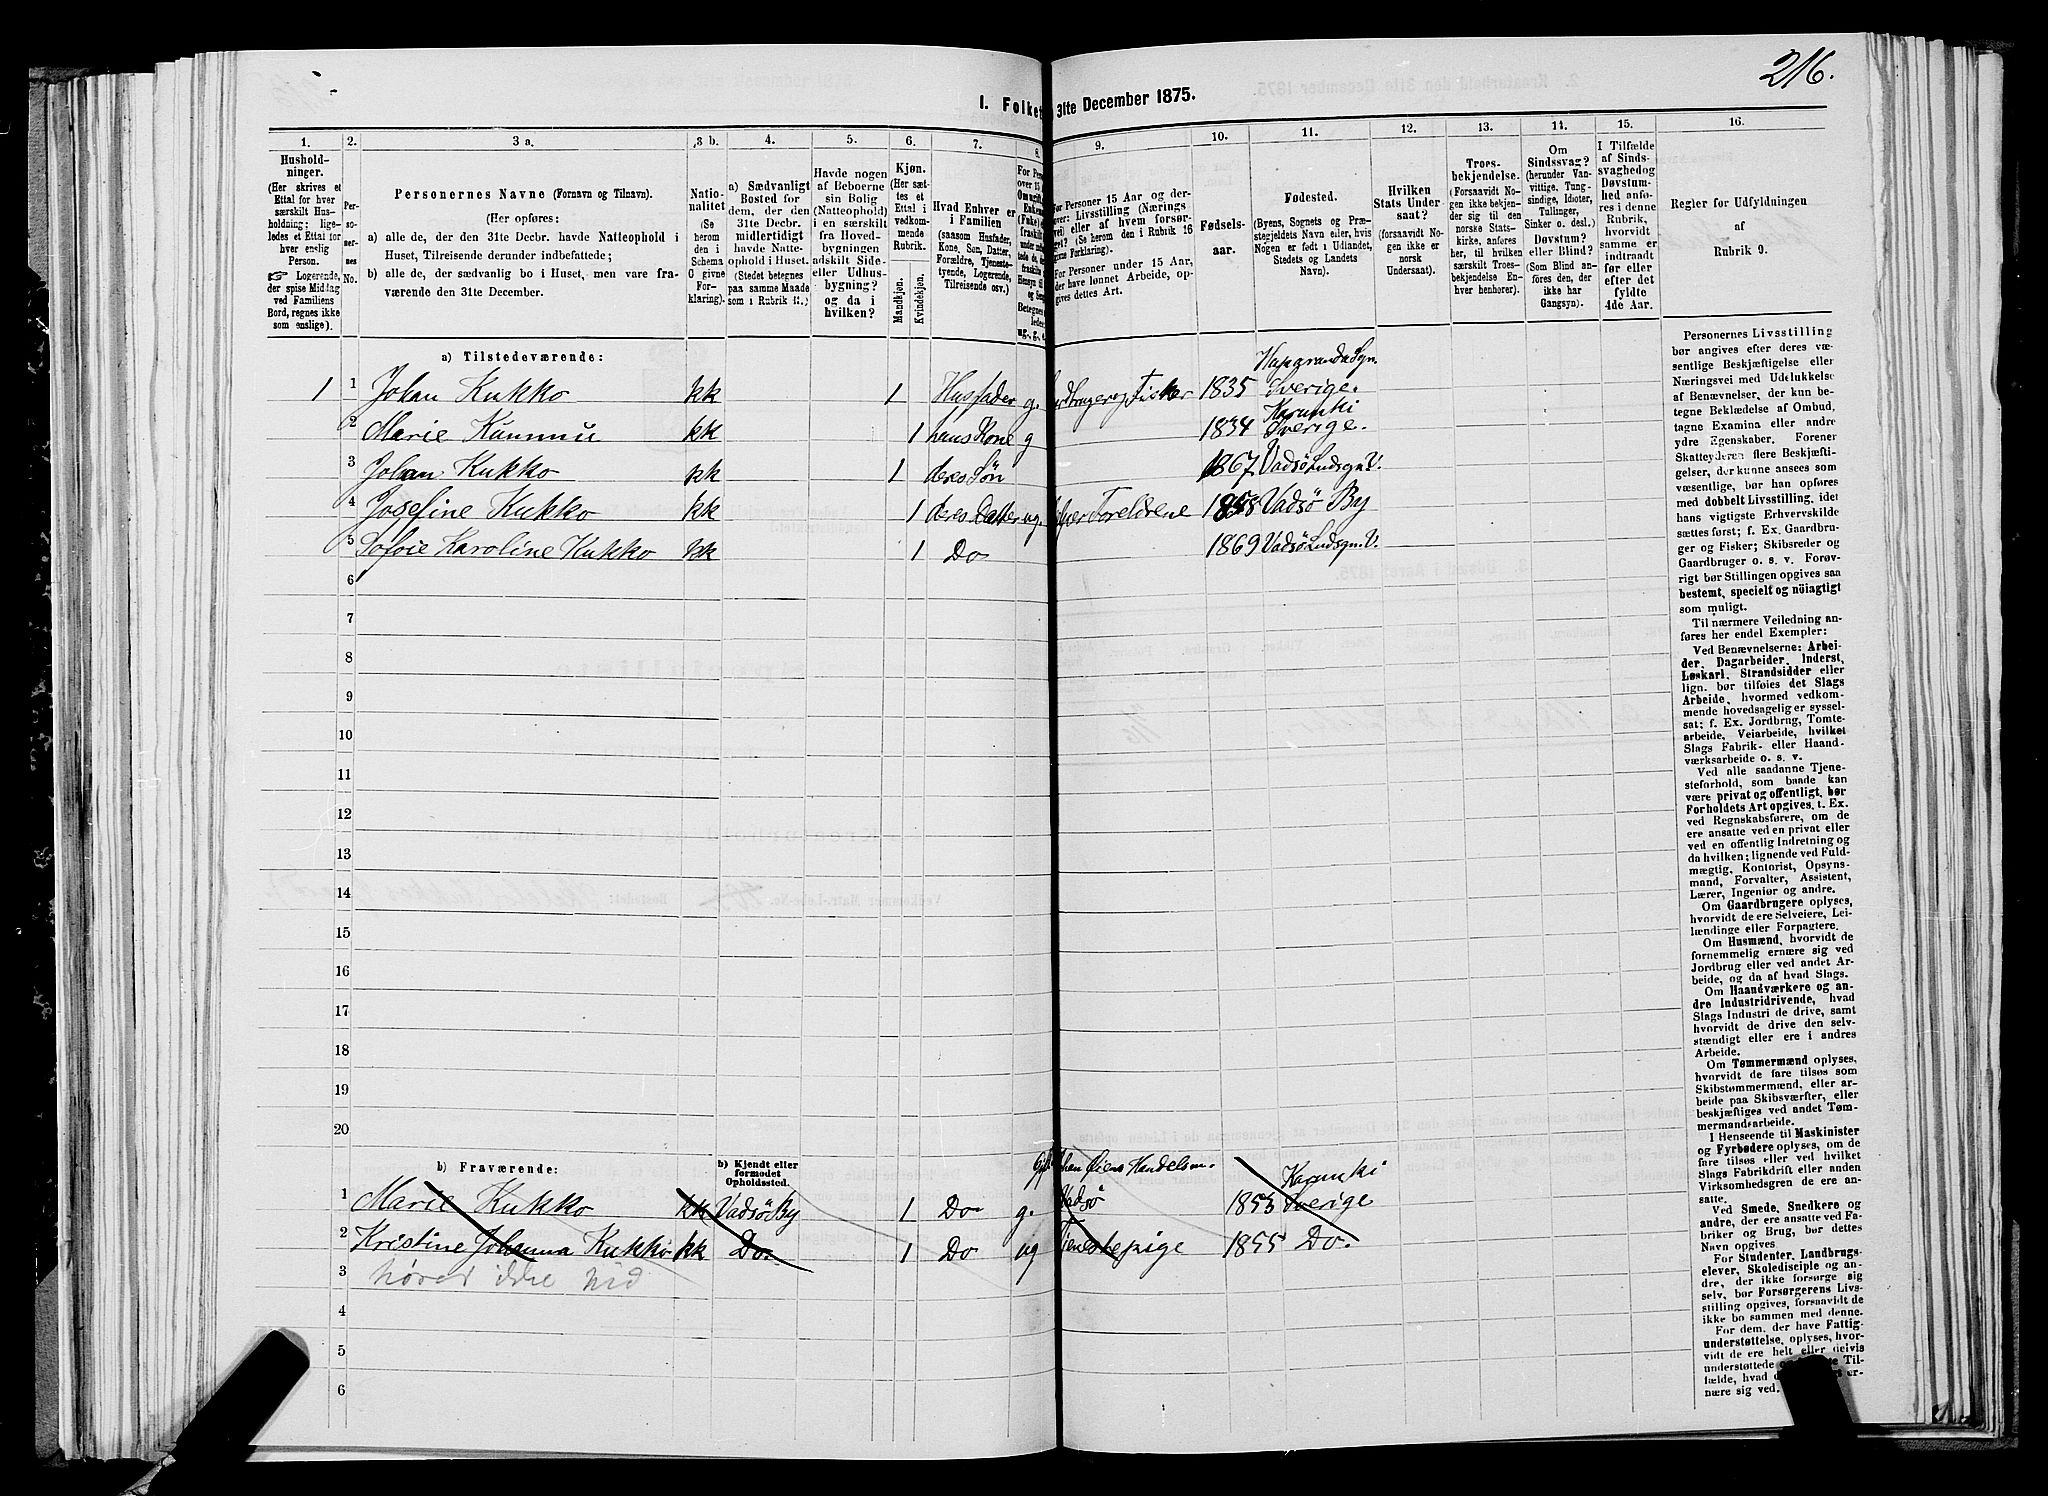 216.
I. Folket
31te December 1875.
1.
2.
3 a.
3 b.
4.
5.
6.
7.
8.
9.
10.
11.
12.
13.
14.
15.
16.
Husholdninger.
(Her skrives et
Ettal for hver
særskilt Husholdning;
ligeledes et Ettal for
hver enslig
Person.
☞ Logerende,
der spise Middag
ved Familiens
Bord, regnes ikke
som enslige).
Personernes No.
Personernes Navne (Fornavn og Tilnavn).
(Her opføres:
a) alle de, der den 31te Decbr. havde Natteophold i
Huset, Tilreisende derunder indbefattede;
b) alle de, der sædvanlig bo i Huset, men vare fraværende
den 31te December.
Nationalitet
(Se
herom
den i
Schema
O givne
Forklaring).
a) Sædvanligt
Bosted for
dem, der den
31te Decbr.
midlertidigt
havde Natteophold
i Huset.
(Stedet betegnes
paa samme Maade
som i Rubrik 11.)
Havde nogen
af Beboerne
sin Bolig
(Natteophold)
i en særskilt
fra Hovedbygningen
adskilt Sideeller
Udhusbygning?
og da i
hvilken?
Kjøn.
(Her sættes
et
Ettal i
vedkommende
Rubrik.
Mandkjøn.
Kvindekjøn.
Hvad Enhver er
i Familien
(saasom Husfader,
Kone, Søn, Datter,
Forældre, Tjenestetyende,
Logerende,
Tilreisende osv.)
For Personer 15 Aar og derover:
Livsstilling (Næringsvei)
eller af hvem forsørget?
(Se herom den i Rubrik 16
givne Forklaring).
For Personer under 15 Aar,
der have lønnet Arbeide, opgives
dettes Art.
Fødselsaar.
Fødested.
(Byens, Sognets og Præstegjeldets
Navn eller, hvis
Nogen er født i Udlandet,
Stedets og Landets
Navn).
Hvilken
Stats Undersaat?
(forsaavidt Nogen
ikke er
norsk
Undersaat).
Troesbekjendelse.
(Forsaavidt Nogen
ikke bekjender
sig til den
norske Statskirke,
anføres
her, til hvilken
særskilt Troesbekjendelse
Enhver
henhører).
Om
Sindssvag?
(herunder Vanvittige,
Tungsindige,
Idioter,
Tullinger,
Sinker o. desl.)
Døvstum?
eller Blind?
(Som Blind anføres
den, der
ikke har
Gangsyn).
I Tilfælde
af Sindssvaghed
og
Døvstumhed
anføres
i denne
Rubrik,
hvorvidt
samme er
indtraadt
før eller
efter det
fyldte
4de Aar.
Regler for Udfyldningen
af
Rubrik 9.
a) Tilstedeværende:
1 1 Johan Kukko kk 1 Husfader g. Jordbruger og Fisker 1835 Haparanda Sgn. Sverige.
2 Marie Kunnmu kk 1 hans Kone g 1834 Karunki Sverige.
3 Johan Kukko kk 1 deres Søn 1867 Vadsø Landsgn. V.
4 Josefine Kukko kk 1 deres Datter ug. hjælper Foreldrene 1858 Vadsø By
5 Sofie Karoline Kukko kk 1 Do 1869 Vadsø Landsgn. V.
6
7
8
9
10
11
12
13
14
15
16
17
18
19
20
b) Fraværende:
b) Kjendt eller
formodet
Opholdssted.
1 Marie Kukko kk Vadsø By 1 Do g. Handelsm. Vadsø 1853 Karunki Sverige
2 Kristine Johanna Kukko kk Do. 1 Do ug Tjenestepige 1855 Do.
3 hører ikke hid
4
5
6
Personernes Livsstilling
bør angives efter deres væsentlige
Beskjæftigelse eller
Næringsvei med Udelukkelse
af Benævnelser, der kun betegne
Beklædelse af Ombud,
tagne Examina eller andre
ydre Egenskaber. Forener
Skatteyderen flere Beskjæftigelser,
der kunne ansees som
væsentlige, bør han opføres
med dobbelt Livsstilling, idet
hans vigtigste Erhvervskilde
sættes først; f. Ex. Gaardbruger
og Fisker; Skibsreder og
Gaardbruger o. s. v. Forøvrigt
bør Stillingen opgives saa
bestemt, specielt og nöiagtigt
som muligt.
Til nærmere Veiledning anføres
her endel Exempler:
Ved Benævnelserne: Arbeider,
Dagarbeider, Inderst,
Løskarl, Strandsidder eller
lign. bør tilføies det Slags
Arbeide, hvormed vedkommende
hovedsagelig er sysselsat;
f. Ex. Jordbrug, Tomtearbeide,
Veiarbeide, hvilket
Slags Fabrik- eller Haandværksarbeide
o. s. v.
Ved alle saadanne Tjenesteforhold,
som baade kan
være privat og offentligt, bør
Forholdets Art opgives, t. Ex.
ved Regnskabsførere, om de
ere ansatte ved en privat eller
ved en offentlig Indretning og
da hvilken; lignende ved Fuldmægtig,
Kontorist, Opsynsmand,
Forvalter, Assistent,
Lærer, Ingeniør og andre.
Om Gaardbrugere oplyses,
hvorvidt de ere Selveiere, Leilændinge
eller Forpagtere.
Om Husmænd, hvorvidt de
fornemmelig ernære sig ved
Jordbrug eller ved andet Arbeide,
og da af hvad Slags.
Om Haandværkere og andre
Industridrivende, hvad
Slags Industri de drive, samt
hvorvidt de drive den selvstændigt
eller ere i andres
Arbeide.
Om Tømmermænd oplyses,
hvorvidt de fare tilsøs som
Skibstømmermænd, eller arbeide
paa Skibsværfter, eller
beskjæftiges ved andet Tømmermandsarbeide.
I Henseende til Maskinister
og Fyrbødere oplyses, om de
fare tilsøs eller ved hvilket
Slags Fabrikdrift eller anden
Virksomhedsgren de ere ansatte.
Ved Smede, Snedkere og
andre, der ere ansatte ved Fabriker
og Brug, bør dettes
Navn opgives
For Studenter, Landbrugselever,
Skoledisciple og andre,
der ikke forsørge sig
selv, bør Forsørgerens Livsstilling
opgives, forsaavidt de
ikke bo sammen med denne.
For dem, der have Fattigunderstøttelse,
oplyses, hvorvidt
de ere helt eller delvis
understøttede